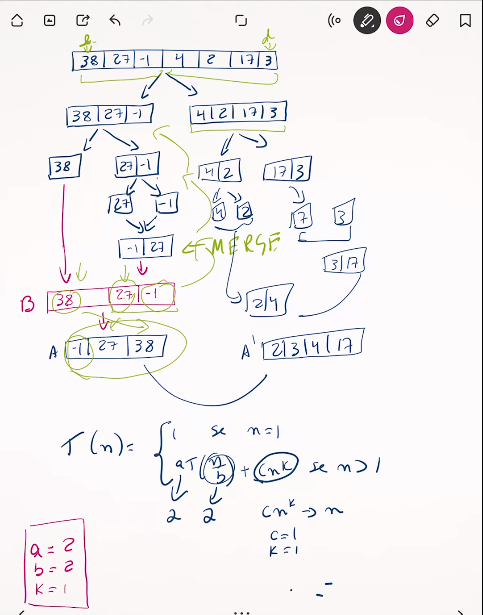 38 27 -1 4 2 17 3
38 27 -1 4 2 17 3
38 27 -1 4 2 17 3
27 -1 4 2 7 3
-1 27 MERGE
3 17
B 38 27 -1 2 4
A -1 27 38 A' 2 3 4 17
T(n)= { 1 se n=1
aT(n/b) + cn^k se n>1
2 2 cn^k → n
c=1
k=1
a = 2
b = 2
k = 1